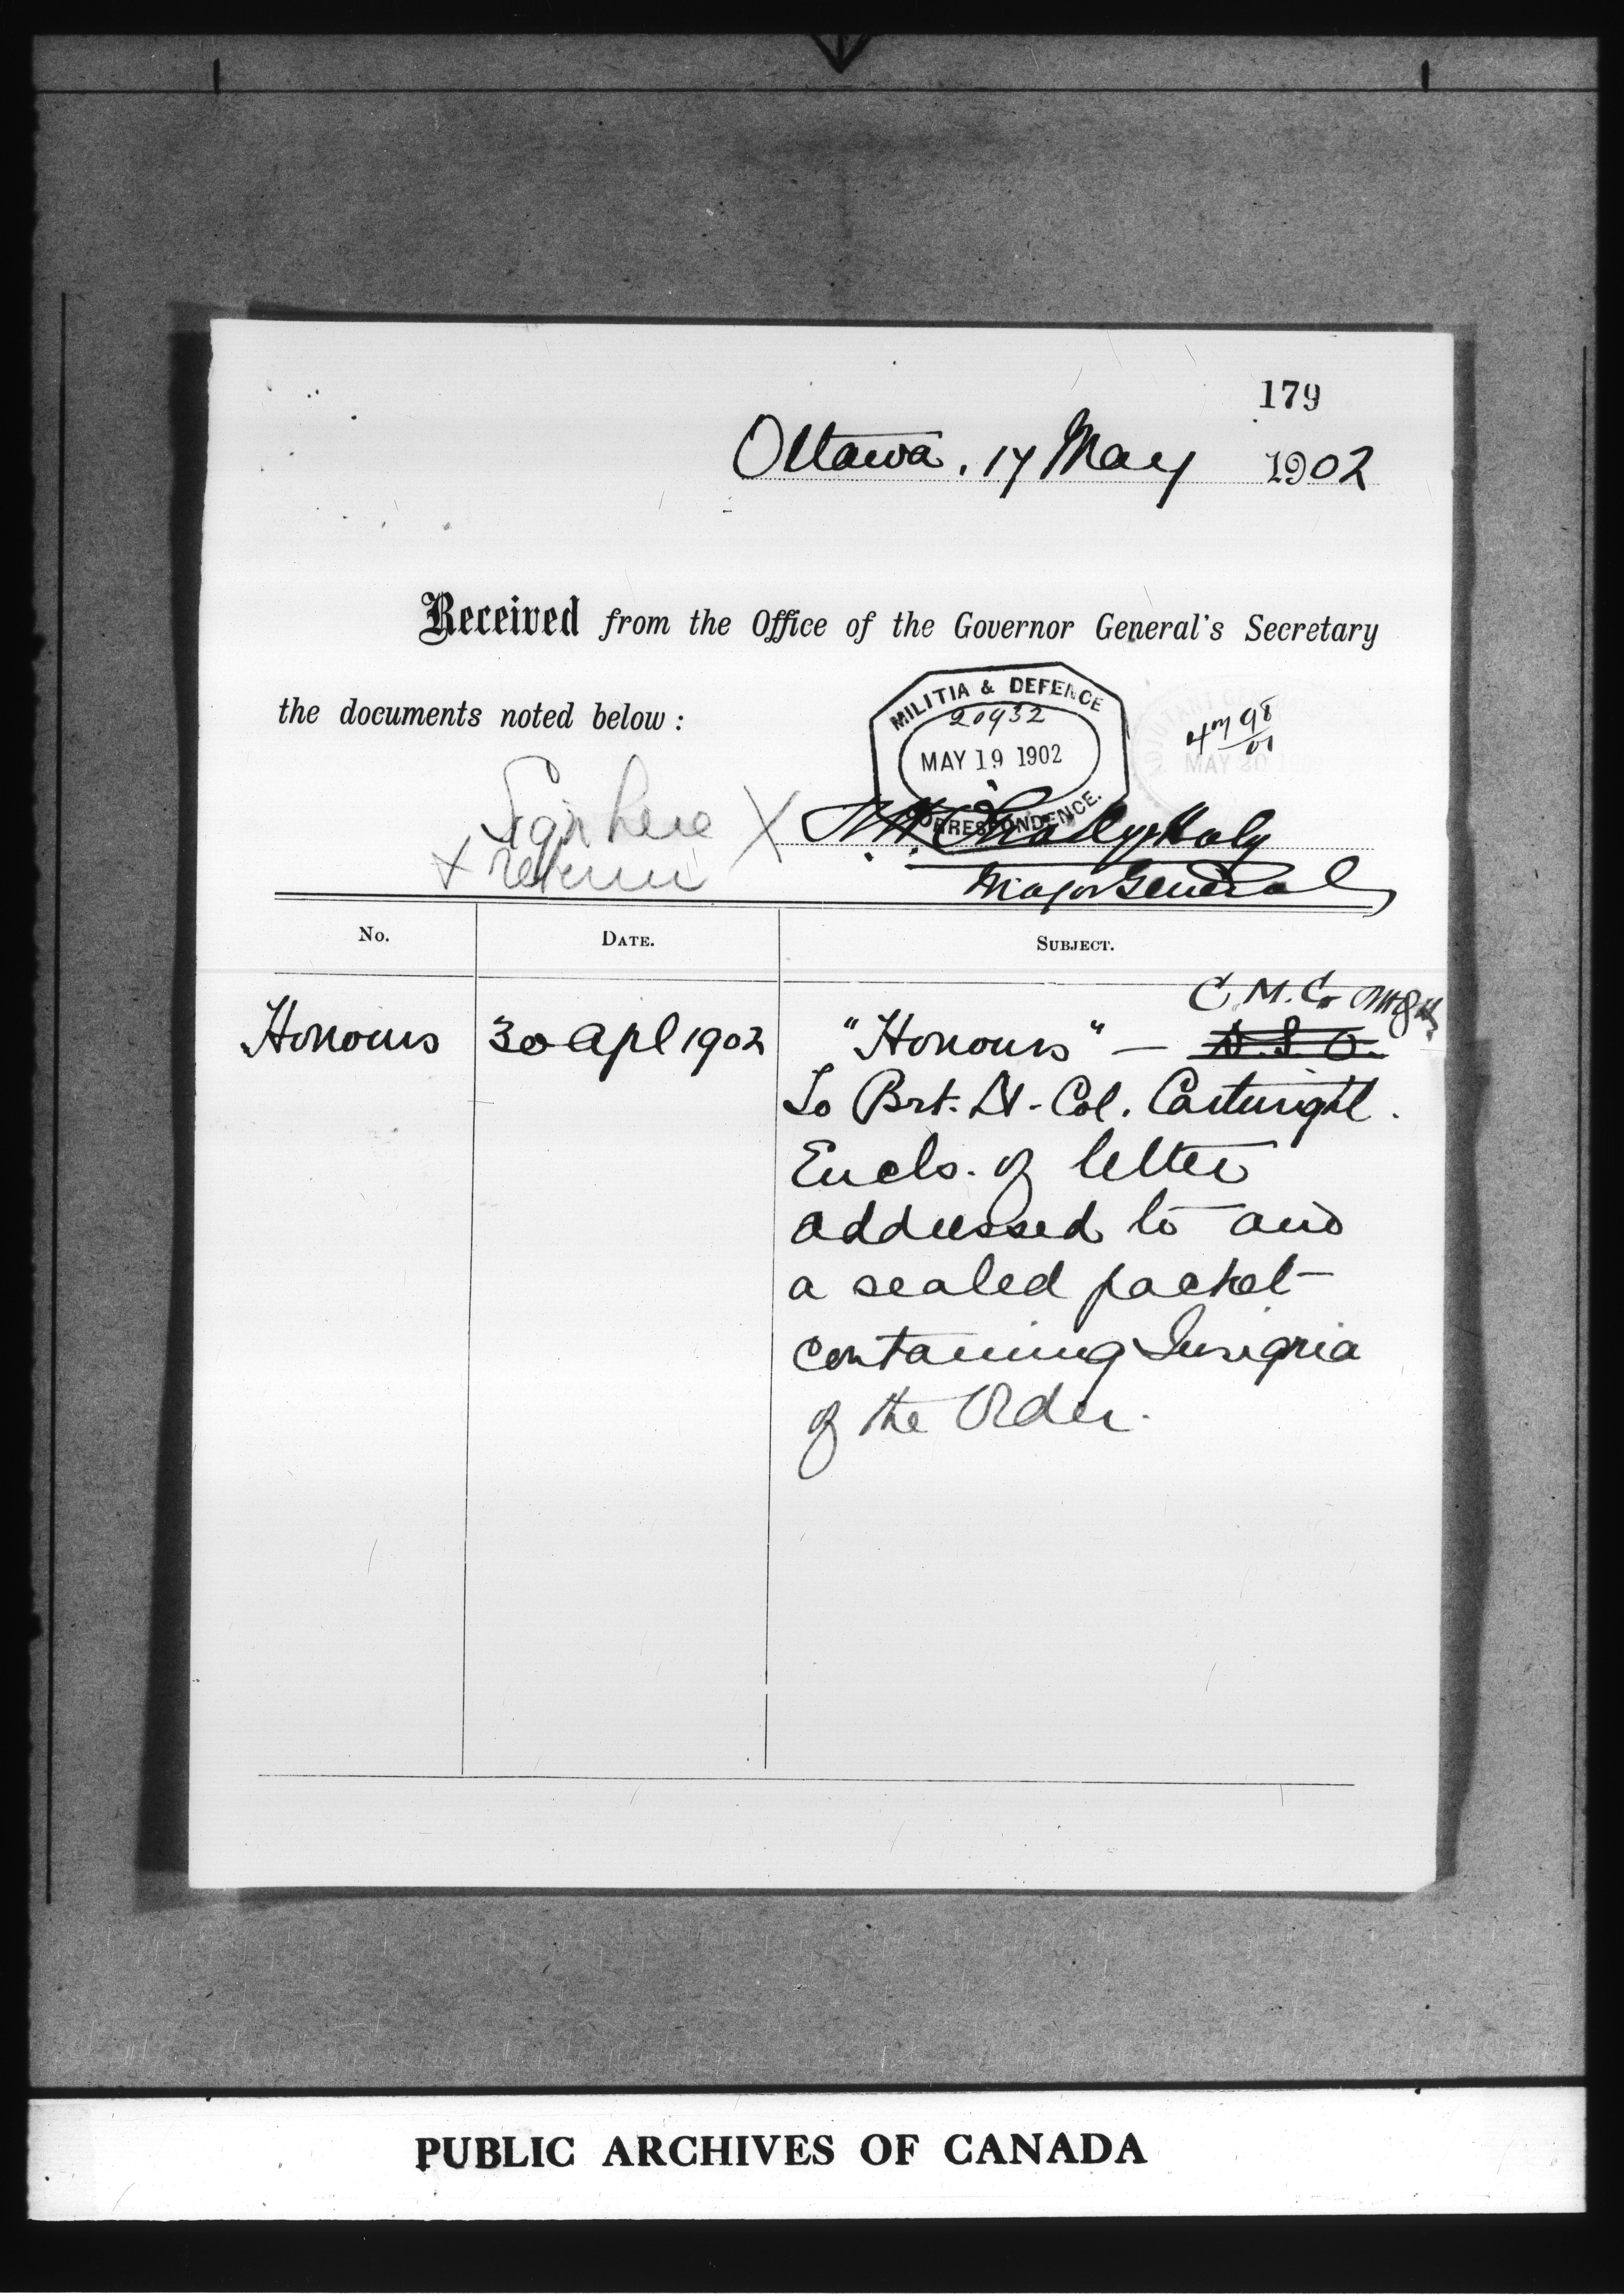 179
Ottawa. 17 May 1902
Received from the Office of the Governor General's Secretary
the documents noted below :
MILITIA & DEFENCE
20932
MAY 19 1902
CORRESPONDENCE.
98
01
MAY 20
Sign here X
& return
Major General
No. DATE. SUBJECT.
C. M. G.
Honours 30 Apl 1902 "Honours" — D. S. O.
To Brt. Lt-Col. Cartwright.
Encls. of letter
addressed to and
a sealed packet
containing Insignia
of the Order.
PUBLIC ARCHIVES OF CANADA